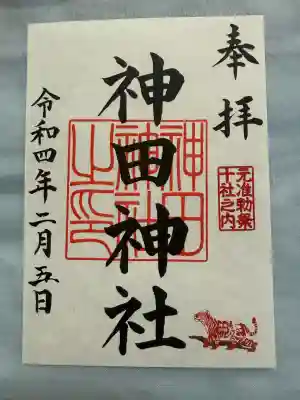 奉拝
元准勅祭
十社之内
神田神社
神田
神社
之印
令和四年二月五日